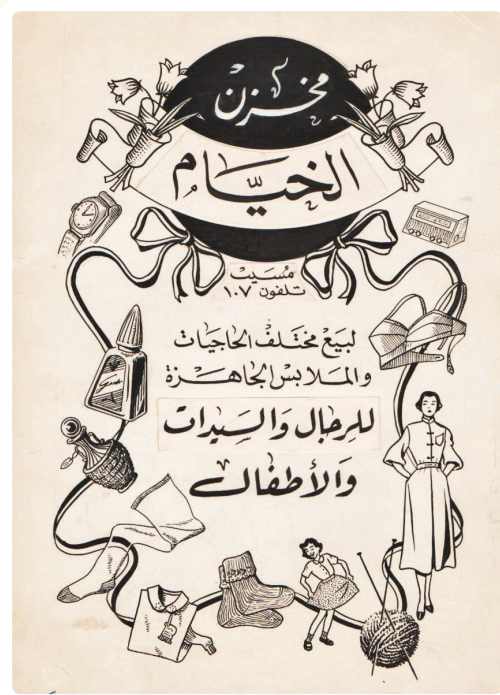 مخزن
الخيّام
مسيب
تلفون ١٠٧
لبيع مختلف الحاجيات
والملابس الجاهزة
للرجال والسيدات
والأطفال